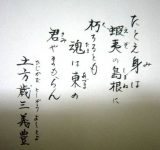 たとえ身は
蝦夷の島根に
朽るとも
魂は東の
君やまもらん
土方歳三義豊